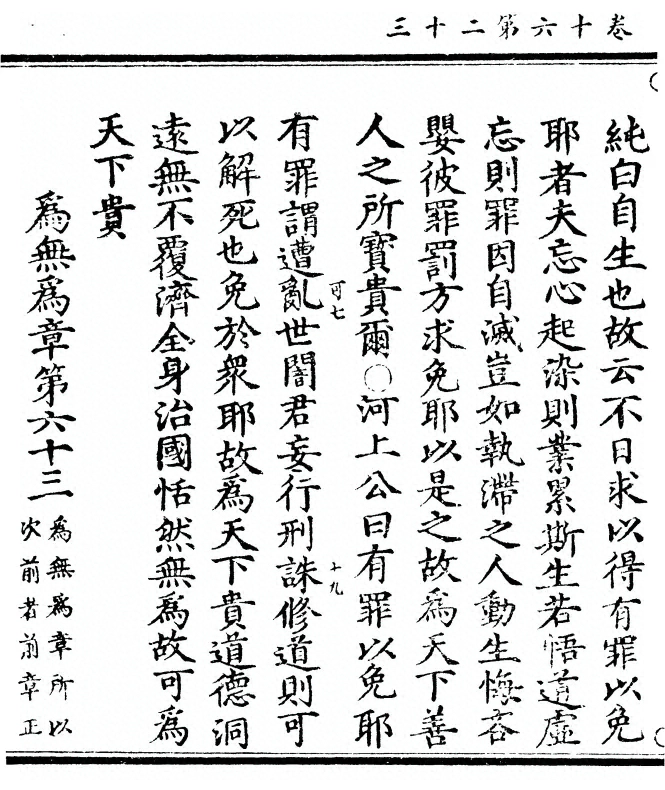 卷十六第二十三
純白自生也故云不日求以得有罪以免
耶者夫忘心起染則業累斯生若悟道虛
忘則罪因自滅豈如執滯之人動生悔吝
嬰彼罪罰方求免耶以是之故為天下善
人之所寶貴爾○河上公曰有罪以免耶
有罪謂遭亂世闇君妄行刑誅修道則可
可七
十九
以解死也免於衆耶故為天下貴道德洞
遠無不覆濟全身治國恬然無為故可為
天下貴
為無為章第六十三
為無為章所以
次前者前章正